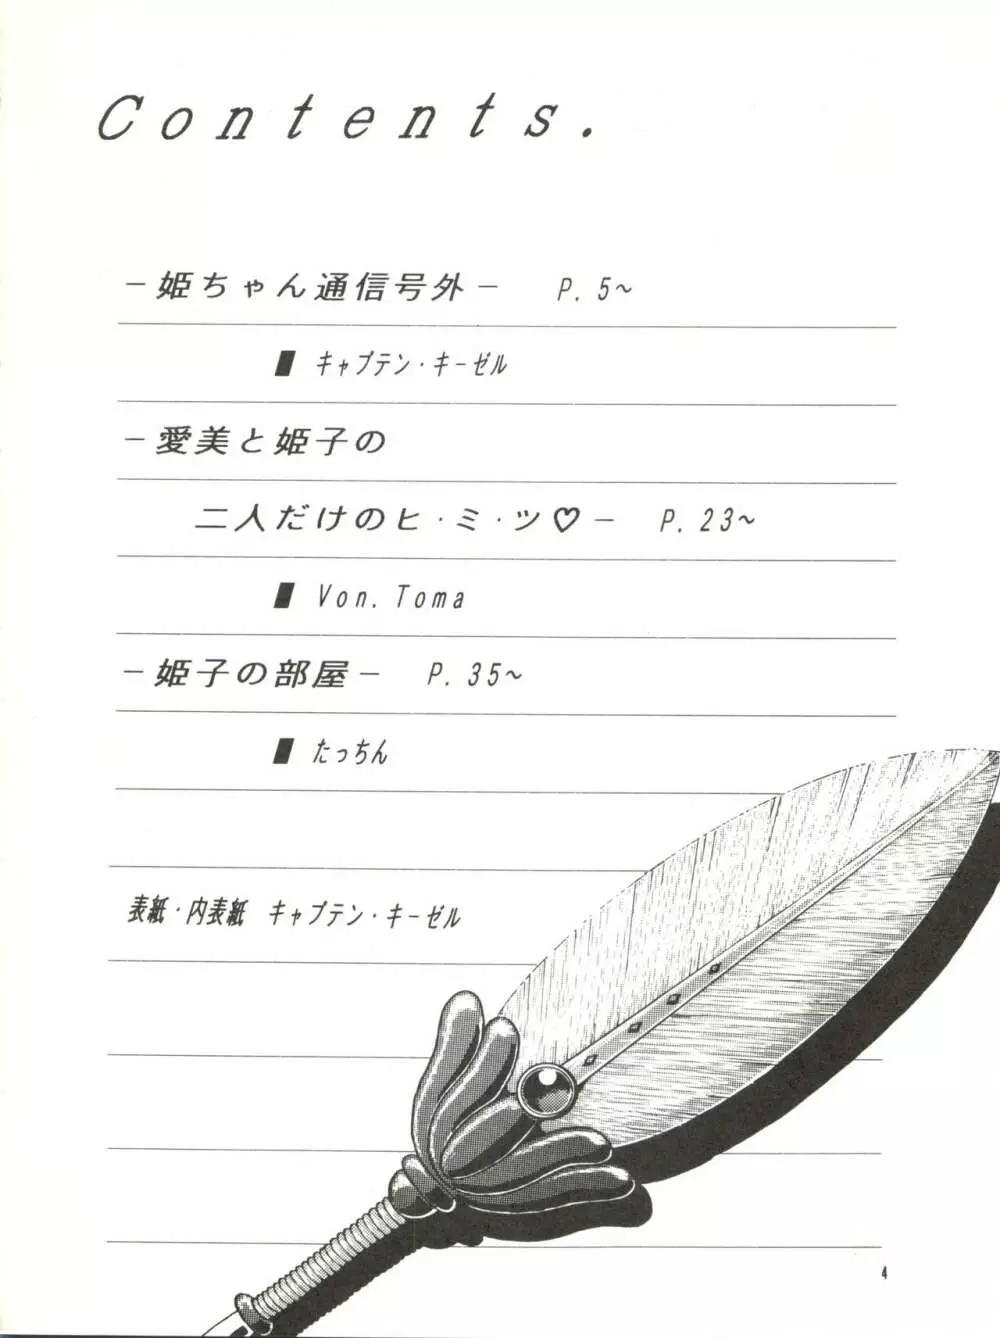 Contents.
－姫ちゃん通信号外－ P.5~
■ キャプテン・キーゼル
－愛美と姫子の
二人だけのヒ・ミ・ツ♡－ P.23~
■ Von.Toma
－姫子の部屋－ P.35~
■ たっちん
表紙・内表紙 キャプテン・キーゼル
4